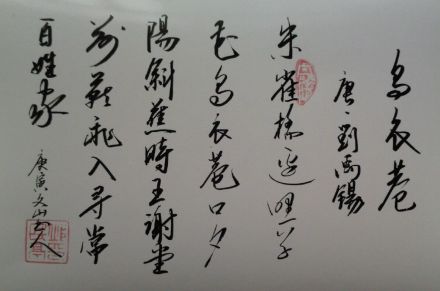 烏衣巷
唐·劉禹錫
朱雀橋邊野草
花烏衣巷口夕
陽斜舊時王謝堂
前燕飛入尋常
百姓家
庚寅文山人